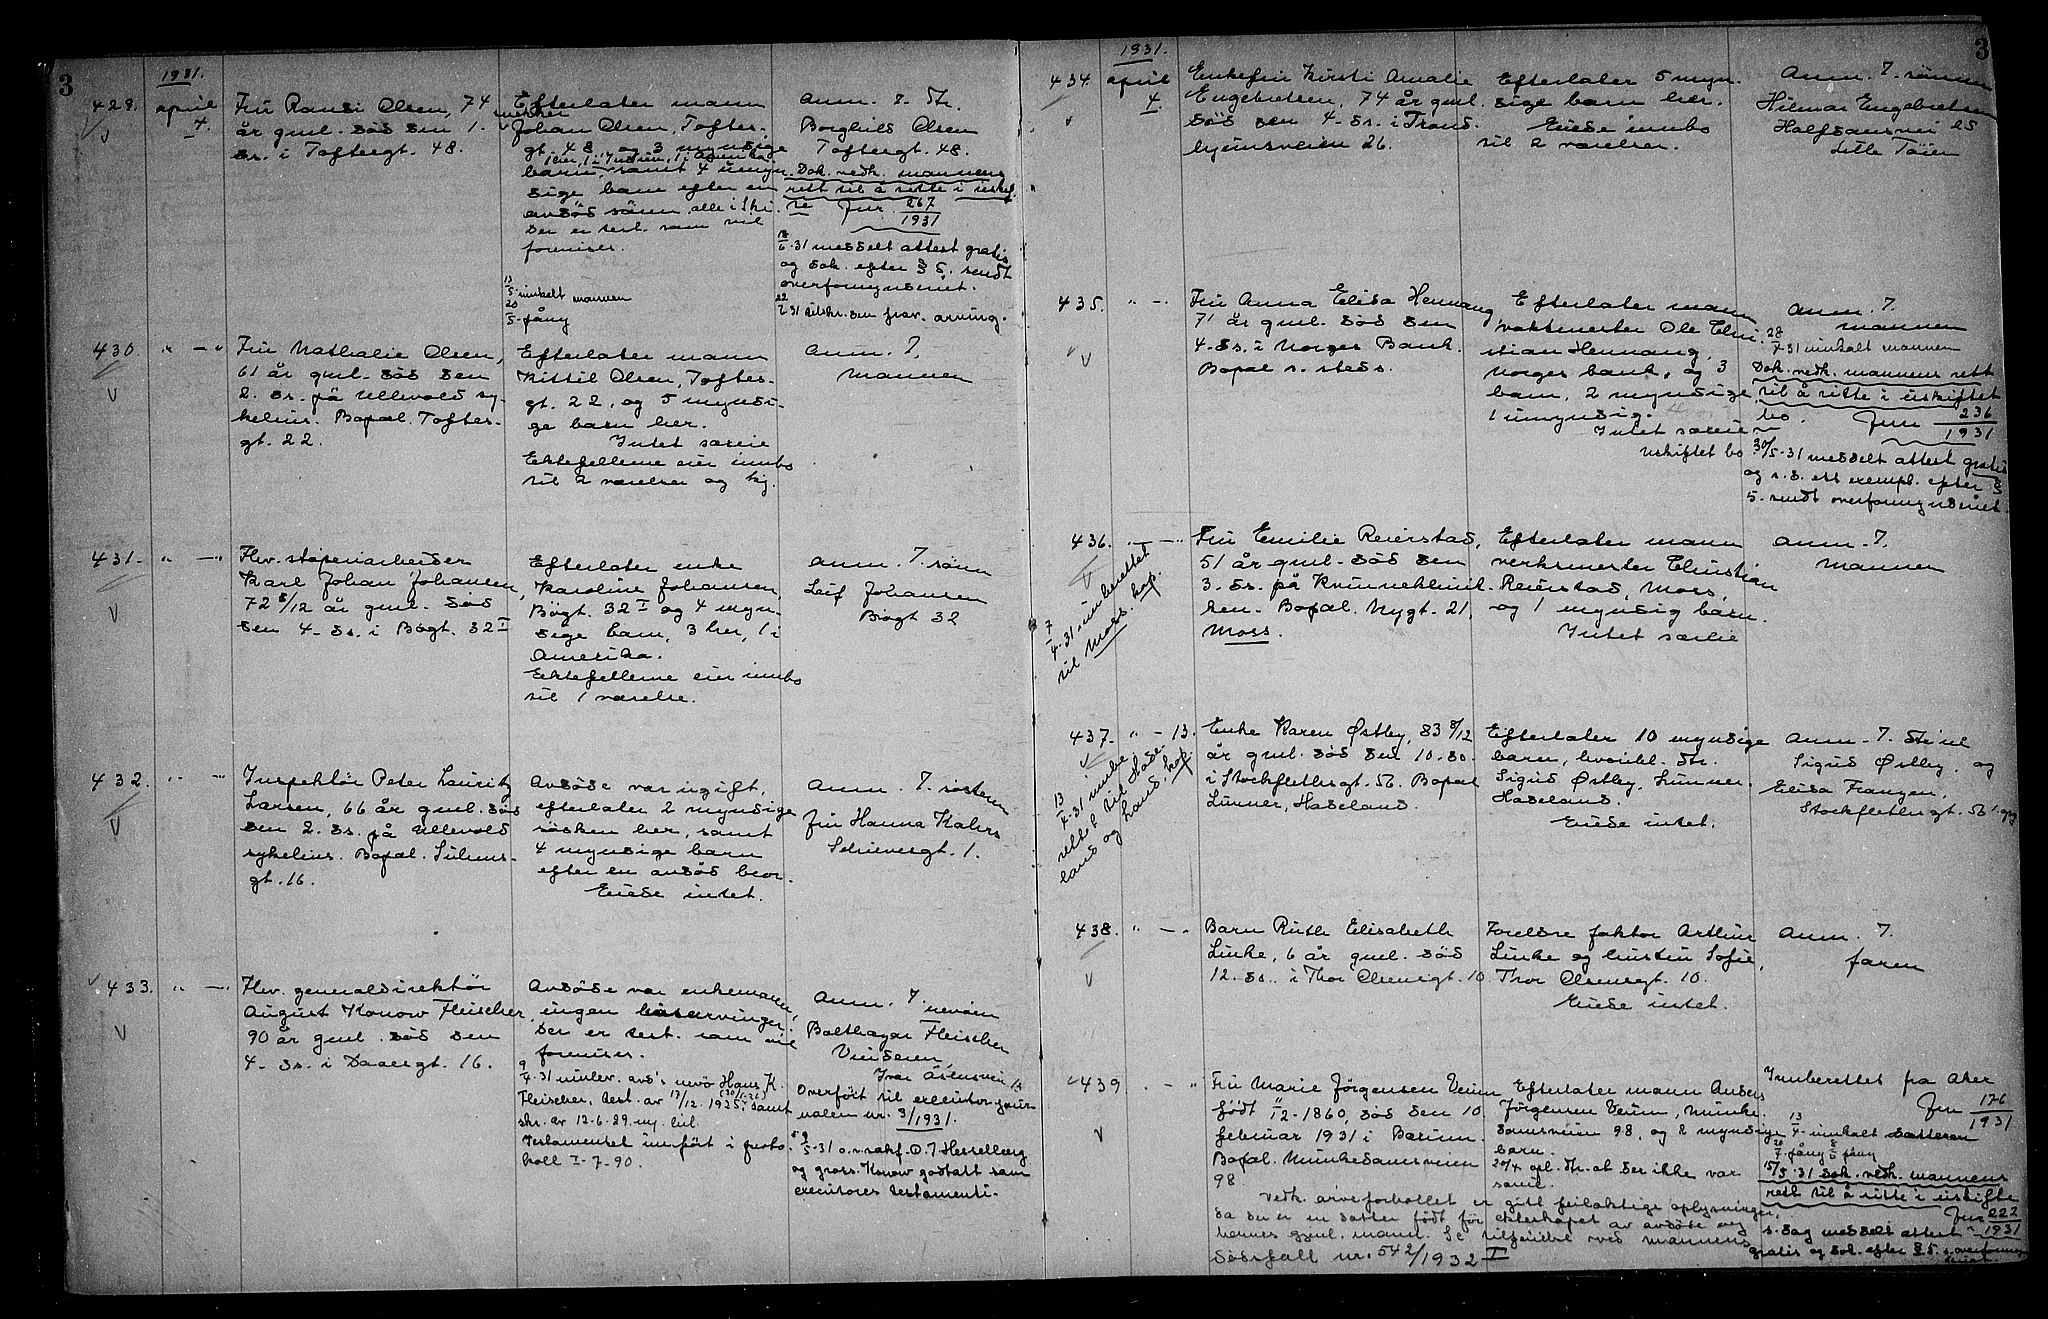 3
1931.
429.
april
4.
Fru Randi Olsen, 74
år gml. död den 1.
ds. i Toftesgt. 48.
Efterlater mann
snekker
Johan Olsen, Toftes-
gt. 48 og 3 myndige
1 her, 1 i Indien, 1 i Amerika
barn, samt 4 umyn-
dige barn efter en
avdöd sönn, alle i Ski.
Der er test. som vil
fremises.
13/5 innkalt mannen
20/5 på ny
Anm. 7. dtr.
Borghild Olsen
Toftesgt. 48.
Dok. vedk. mannens
rett til å sitte i uskif-
te Jnr 267/1931
18/6-31 meddelt attest gratis
og dok. efter § 5. sendt
overformynderiet.
430.
" — "
Fru Nathalie Olsen,
61 år gml. död den
2. ds. på Ullevold sy-
kehus. Bopæl Toftes-
gt. 22.
Efterlater mann
Kittil Olsen, Toftes-
gt. 22, og 5 myndi-
ge barn her.
Intet særeie
Ektefellerne eier innbo
til 2 værelser og kj.
Anm. 7.
mannen
431.
" — "
Fhv. stöperiarbeider
Karl Johan Johansen,
72 8/12 år gml. död
den 4. ds. i Bögt. 32 I
Efterlater enke
Karoline Johansen,
Bögt. 32 I og 4 myn-
dige barn, 3 her, 1 i
Amerika.
Ektefellerne eier innbo
til 1 værelse.
Anm. 7. sönn
Leif Johansen
Bögt 32
432.
" — "
Inspektör Peter Lauritz
Larsen, 66 år gml. död
den 2. ds. på Ullevold
sykehus. Bopæl.
gt. 16.
Avdöde var ugift,
efterlater 2 myndige
sösken her, samt
4 myndige barn
efter en avdöd bror.
Eiede intet.
Anm. 7. söstern
fru Hanna Kahrs
Schivesgt. 1.
433.
" — "
Fhv. generaldirektör
August Konow Fleischer
90 år gml. död den
4. ds. i Daaesgt. 16.
Avdöde var enkemann,
ingen livsarvinger.
Der er test. som vil
fremises.
9/4-31 innlev. avd's nevö Hans K.
Fleischer, test. av 17/12. 1925, samt
skr. av 12-6-29. m. bil.
Testamentet innfört i proto-
koll I-7-90.
Anm. 7. nevöen
Balthazar Fleischer
Vinderen
Ivar Åsensvei 13
Overfört til executor jour-
nalen nr. 3/1931.
5-31 o.r.sakf. O. T Hesselberg
og gross. Konow godtatt som
executores testamenti.
3
1931.
434.
april
4
Enkefru Kirsti Amalie
Engebretsen, 74 år gml.
död den 4. ds. i Trond-
hjemsveien 26.
Efterlater 5 myn-
dige barn her.
Eiede innbo
til 2 værelser.
Anm. 7. sönnen
Hilmar Engebretsen
Halfdansvei 25
Lille Töien
435.
" — "
Fru Anna Elisa Hennang
71 år gml. död den
4. ds. i Norges Bank.
Bopæl s. steds.
Efterlater mann
vaktmester Ole Chri-
stian Hennang,
Norges bank, og 3
barn, 2 myndige,
1 umyndig.
Intet særeie
Uskiftet bo
Anm. 7.
mannen
28/7-31 innkalt mannen
Dok. vedk. mannens rett
til å sitte i uskiftet
bo. Jnr 236/1931
30/5-31 meddelt attest gratis
og s. d. ett exempl. efter §
5. sendt overformynderiet.
436.
" — "
7/4-31 innberettet
til Moss. kop.
Fru Emilie Reierstad,
51 år gml. död den
3. ds. på Kvinneklinik-
ken. Bopæl. Nygt. 21,
Moss.
Efterlater mann
verksmester Christian
Reierstad, Moss,
og 1 myndig barn.
Intet særeie
Anm. 7.
mannen
437.
" - 13.
13/4-31 innbe-
rettet til Hade-
land og Land. kop.
Enke Karen Østby, 83 8/12
år gml. död den 10. ds.
i Stockflethsgt. 56. Bopæl
Lunner, Hadeland.
Efterlater 10 myndige
barn, hvoribl. dtr.
Sigrid Østby, Lunner,
Hadeland.
Eiede intet.
Anm. 7.
Sigrid Østby, og
Elisa Franzen,
Stockflethsgt. 56
438.
" — "
Barn Ruth Elisabeth
Linke, 6 år gml. död
12. ds. i Thor Olsensgt. 10
Foreldre faktor Arthur
Linke og hustru Sofie,
Thor Olsensgt. 10.
Eiede intet.
Anm. 7.
faren
439
" — "
Fru Marie Jörgensen Veum
født 2-1860, död den 10
februar 1931 i Bærum.
Bopæl. Munkedamsveien
98
Efterlater mann Anders
Jörgensen Veum, Munke-
damsveien 98, og 2 myndige
barn.
Vedk. arveforholdet er gitt feilaktige oplysninger,
da der er en datter född för ekteskapet av avdöde og
hennes gjenl. mann. Se tilförsel ved mannens
dödsfall nr. 542/1932 I
Innberettet fra Aker
Jnr 176/1931
13/4-innkalt datteren
15/5-31 dok. vedk. mannens
rett til å sitte i uskifte
Jnr 222/1931
s. dag meddelt attest
gratis og dok. efter § 5 s. overformyn-
deriet.